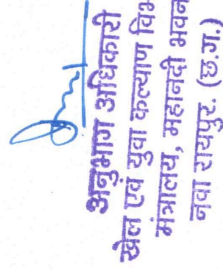 अनुभाग अधिकारी
खेल एवं युवा कल्याण विभ
मंत्रालय, महानदी भवन
नवा रायपुर (छ.ग.)